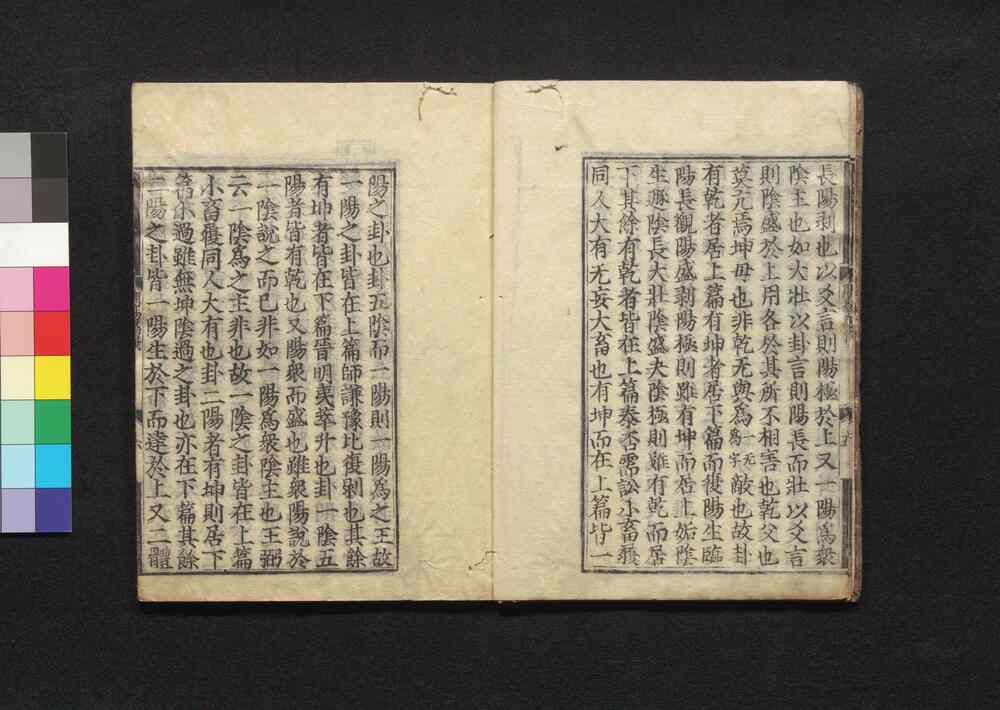 長陽剥也以爻言則陽極於上又一陽爲衆
陰主也如大壯以卦言則陽長而壯以爻言
則陰盛於上用各於其所不相害也乾父也
莫亢焉坤母也非乾无與爲一无爲字敵也故卦
有乾者居上篇有坤者居下篇而復陽生臨
陽長觀陽盛剥陽極則雖有坤而居上姤陰
生遯陰長大壯陰盛夬陰極則雖有乾而居
下其餘有乾者皆在上篇泰否需訟小畜履
同人大有无妄大畜也有坤而在上篇皆一
陽之卦也卦五陰而一陽則一陽爲之主故
一陽之卦皆在上篇師謙豫比復剥也其餘
有坤者皆在下篇晉明夷萃升也卦一陰五
陽者皆有乾也又陽衆而盛也雖衆陽說於
一陰說之而已非如一陽爲衆陰主也王弼
云一陰爲之主非也故一陰之卦皆在上篇
小畜履同人大有也卦二陽者有坤則居下
篇小過雖無坤陰過之卦也亦在下篇其餘
二陽之卦皆一陽生於下而達於上又二體